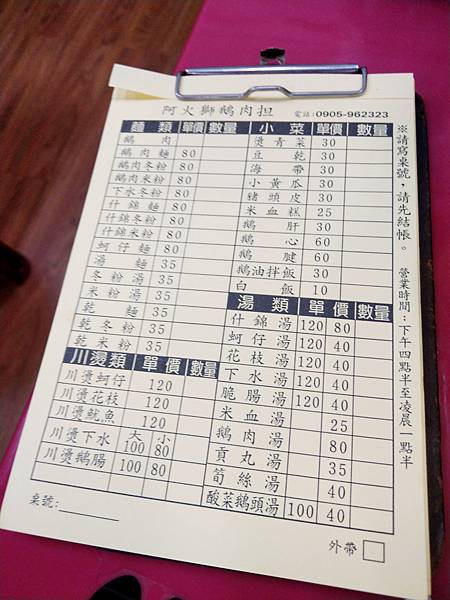 阿火獅鵝肉担 電話:0905-962323
麵類 單價 數量
鵝肉
鵝肉麵 80
鵝肉冬粉 80
鵝肉米粉 80
下水冬粉 80
什錦麵 80
什錦冬粉 80
什錦米粉 80
蚵仔麵 80
湯麵 35
冬粉湯 35
米粉湯 35
乾麵 35
乾冬粉 35
乾米粉 35
川燙類 單價 數量
川燙蚵仔 120
川燙花枝 120
川燙魷魚 120
川燙下水 大100 小80
川燙鵝腸 100 80
桌號:
小菜 單價 數量
燙青菜 30
豆乾 30
海帶 30
小黃瓜 30
豬頭皮 30
米血糕 25
鵝肝 30
鵝心 60
鵝腱 60
鵝油拌飯 30
白飯 10
湯類 單價 數量
什錦湯 120 80
蚵仔湯 120 40
花枝湯 120 40
下水湯 120 40
脆腸湯 120 40
米血湯 25
鵝肉湯 80
貢丸湯 35
筍絲湯 40
酸菜鵝頭湯 100 40
外帶
※請寫桌號，請先結帳。 營業時間:下午四點半至凌晨一點半